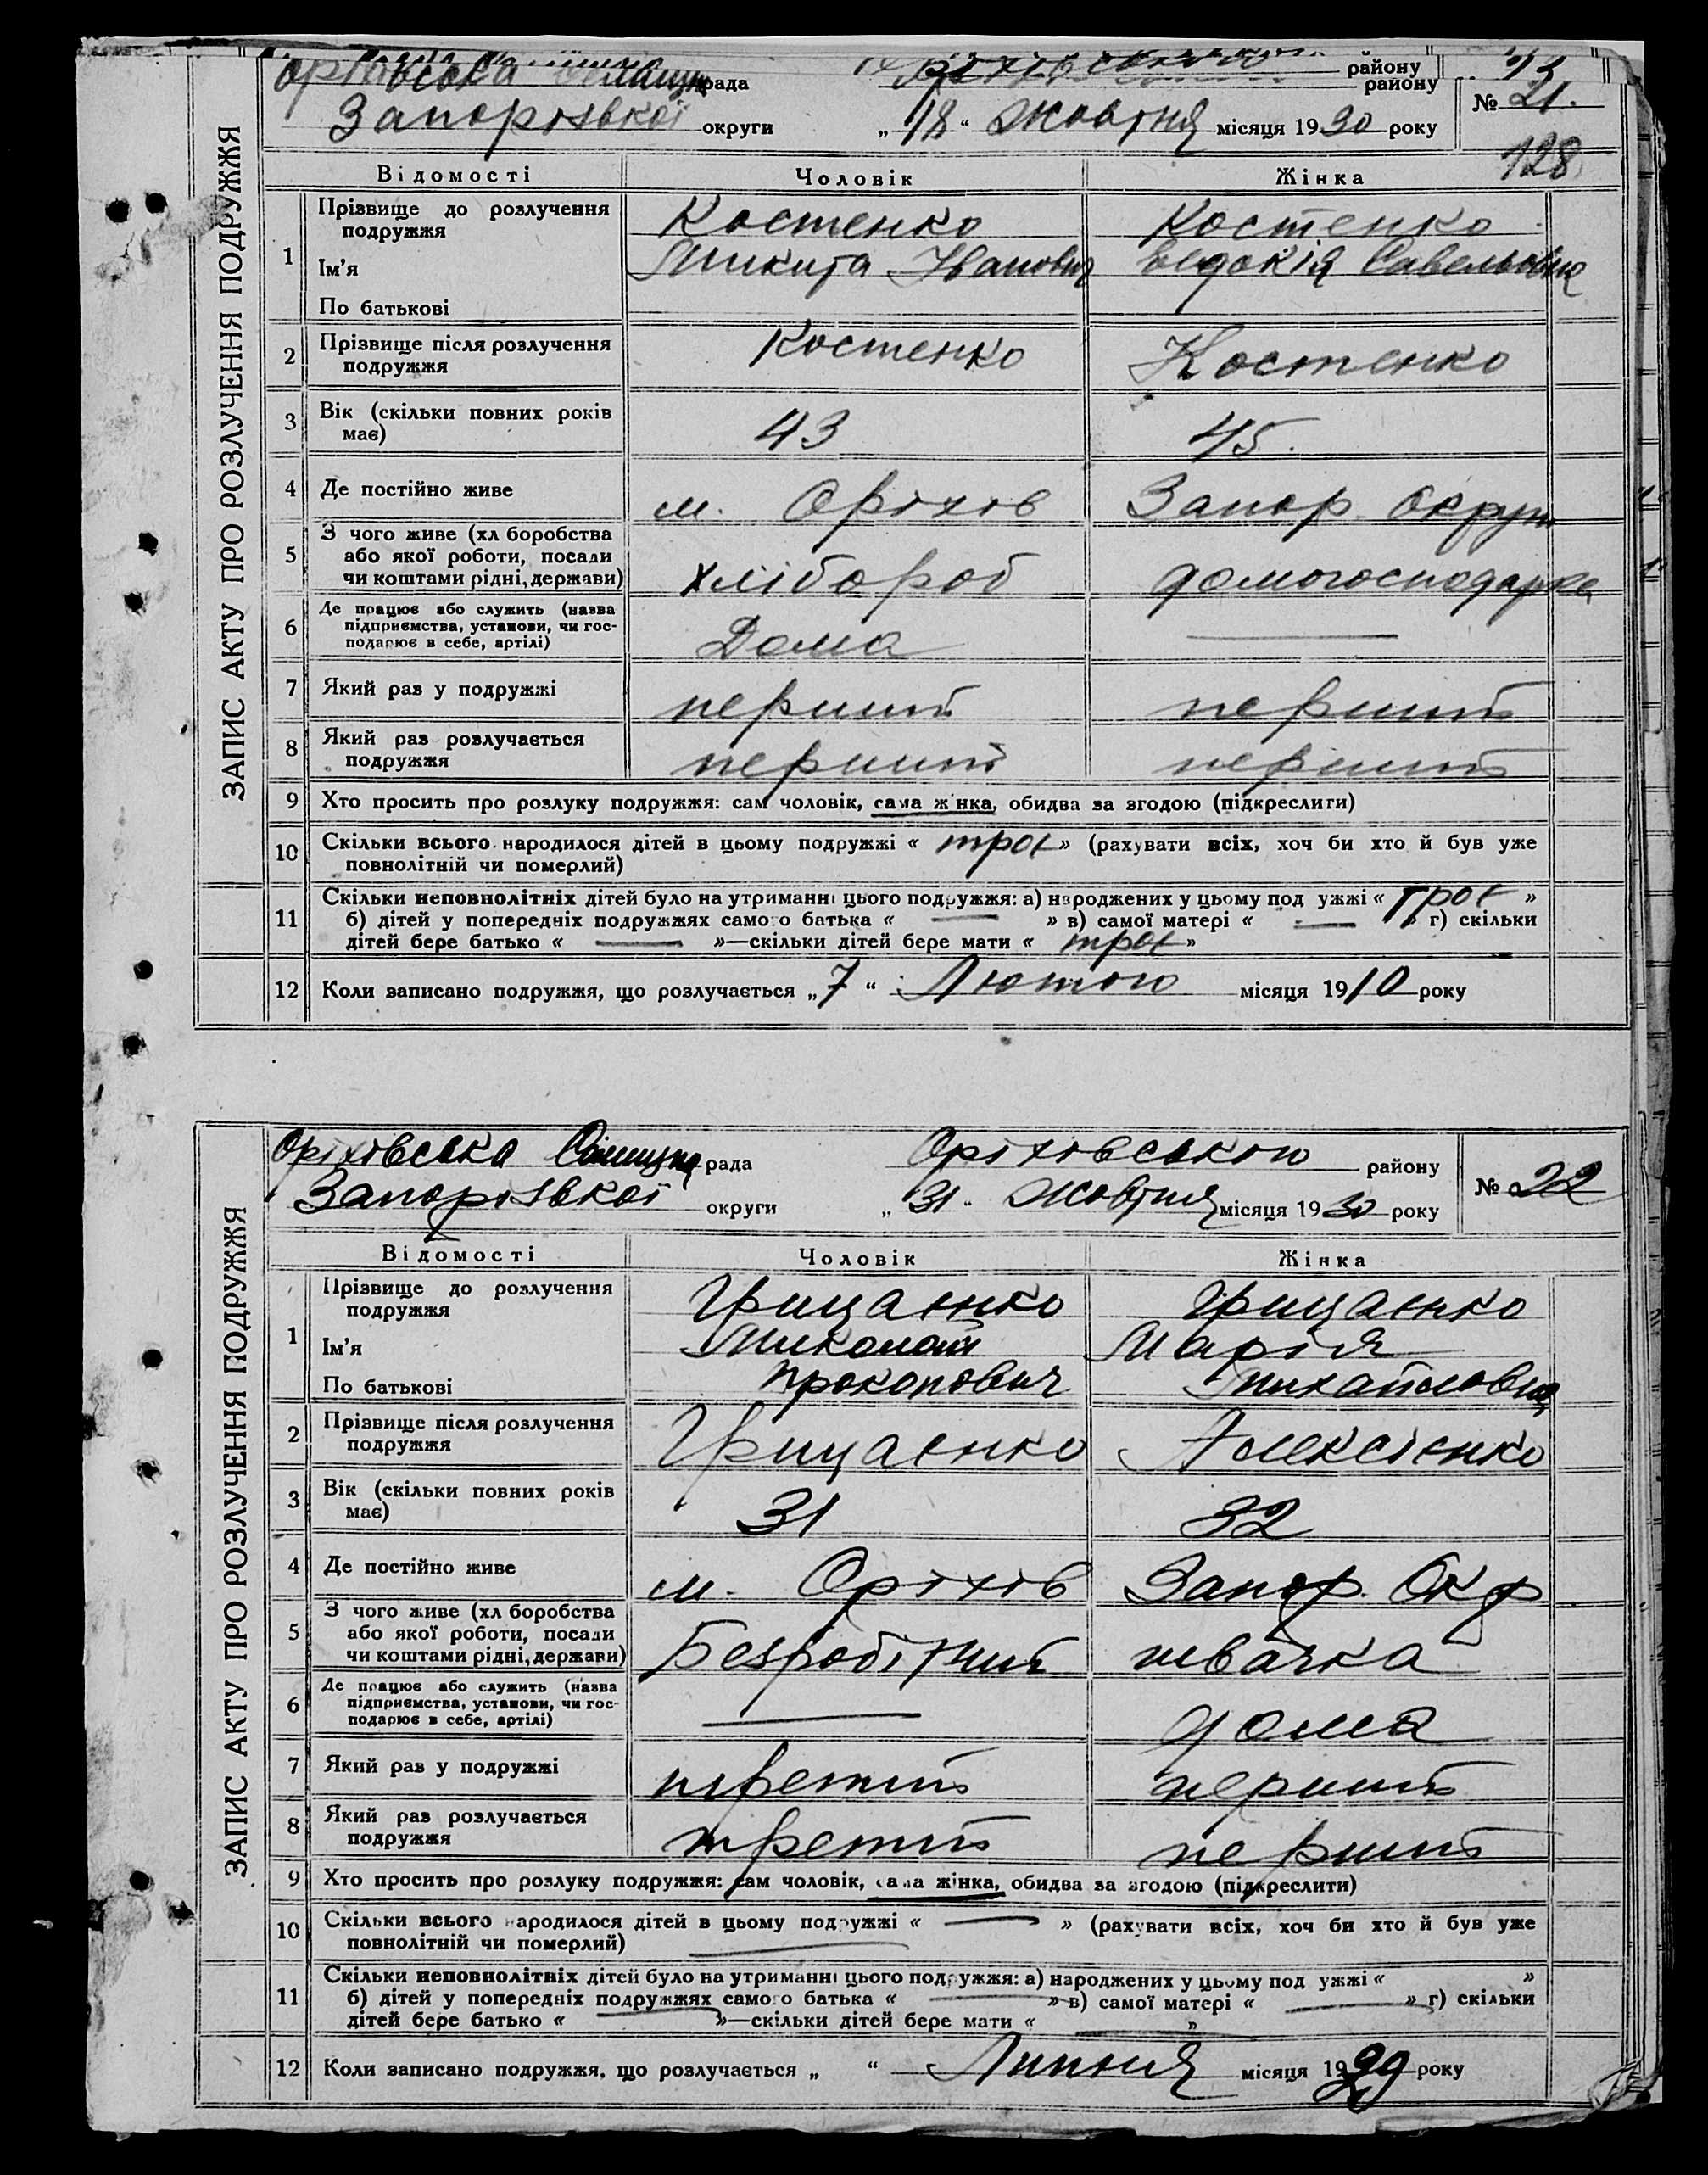 ЗАПИС АКТУ ПРО РОЗЛУЧЕННЯ ПОДРУЖЖЯ
рада району
району
Запорізької округи „18“ Жовтня місяця 1930 року № 21.
128
Відомості Чоловік Жінка
1 Прізвище до розлучення подружжя Костенко Костенко
Ім'я Микита Іванович Евдокія Савельовна
По батькові
2 Прізвище після розлучення подружжя Костенко Костенко
3 Вік (скільки повних років має) 43 45.
4 Де постійно живе м. Оріхів Запор. Округи
5 З чого живе (хл боробства або якої роботи, посади чи коштами рідні, держави) хлібороб домогосподарка
6 Де працює або служить (назва підприємства, установи, чи господарює в себе, артілі) Дома —
7 Який раз у подружжі перший перший
8 Який раз розлучається подружжя перший перший
9 Хто просить про розлуку подружжя: сам чоловік, сама жінка, обидва за згодою (підкреслити)
10 Скільки всього народилося дітей в цьому подружжі « троє » (рахувати всіх, хоч би хто й був уже
повнолітній чи померлий)
11 Скільки неповнолітніх дітей було на утриманні цього подружжя: а) народжених у цьому под ужжі « троє »
б) дітей у попередніх подружжях самого батька « — » в) самої матері « — » г) скільки
дітей бере батько « — »—скільки дітей бере мати « троє »
12 Коли записано подружжя, що розлучається „7“ Лютого місяця 1910 року
ЗАПИС АКТУ ПРО РОЗЛУЧЕННЯ ПОДРУЖЖЯ
Оріховська Селищна рада Оріховського району
Запорізької округи „31“ Жовтня місяця 1930 року № 22
Відомості Чоловік Жінка
1 Прізвище до розлучення подружжя Грицаєнко Грицаєнко
Ім'я Миколай Марія
По батькові Прокопович Михайловна
2 Прізвище після розлучення подружжя Грицаєнко Алексієнко
3 Вік (скільки повних років має) 31 32
4 Де постійно живе м. Оріхів Запор. Окр
5 З чого живе (хл боробства або якої роботи, посади чи коштами рідні, держави) Безробітний швачка
6 Де працює або служить (назва підприємства, установи, чи господарює в себе, артілі) — дома
7 Який раз у подружжі третий перший
8 Який раз розлучається подружжя третий перший
9 Хто просить про розлуку подружжя: сам чоловік, сама жінка, обидва за згодою (підкреслити)
10 Скільки всього народилося дітей в цьому подружжі « — » (рахувати всіх, хоч би хто й був уже
повнолітній чи померлий)
11 Скільки неповнолітніх дітей було на утриманні цього подружжя: а) народжених у цьому под ужжі « »
б) дітей у попередніх подружжях самого батька « — » в) самої матері « — » г) скільки
дітей бере батько « — »—скільки дітей бере мати « — »
12 Коли записано подружжя, що розлучається „ “ Липня місяця 1929 року